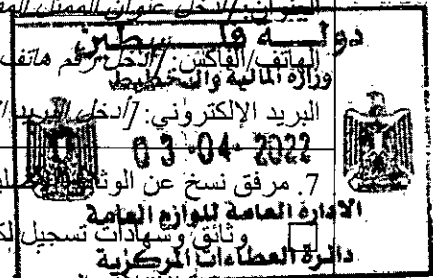 العنوان: [أدخل عنوان الممثل الم
دولة فلسطين
الهاتف/الفاكس: [أدخل رقم هاتف
وزارة المالية والتخطيط
البريد الإلكتروني: [أدخل البريد ال
03-04-2022
7. مرفق نسخ عن الوثائق
الادارة العامة للوازم العامة
وثائق وشهادات تسجيل لك
دائرة العطاءات المركزية